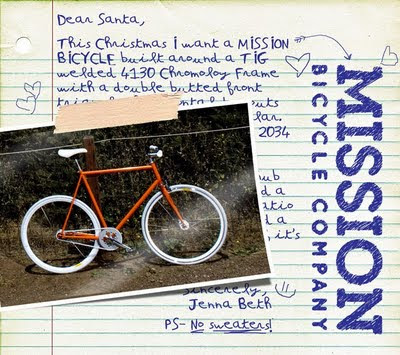 Dear Santa,
This Christmas i want a MISSION
BICYCLE built around a TIG
welded 4130 Chromoloy Frame
with a double butted front
2034
d a
d a
, it's
sincerely,
Jenna Beth
PS- No sweaters!
MISSION
BICYCLE COMPANY